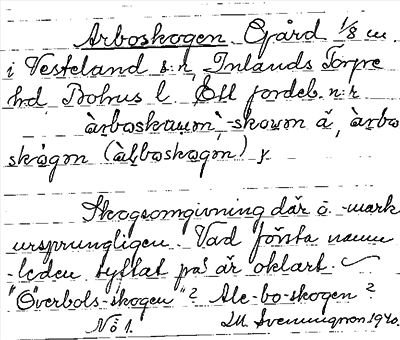 Arboskogen Gård 1/8 m.
i Vesteland s:n, Inlands Torpe
hd, Bohus l. Ett jordeb. n:r
àrboskaum, -skoum å, àrbo
skogen (àlboskogen) y
Skogsomgivning där o. mark
ursprungligen. Vad första namn
-leden syftat på är oklart.
"Överbols-skogen"? Ale-bo-skogen?
No 1. Sveningsson 1940.